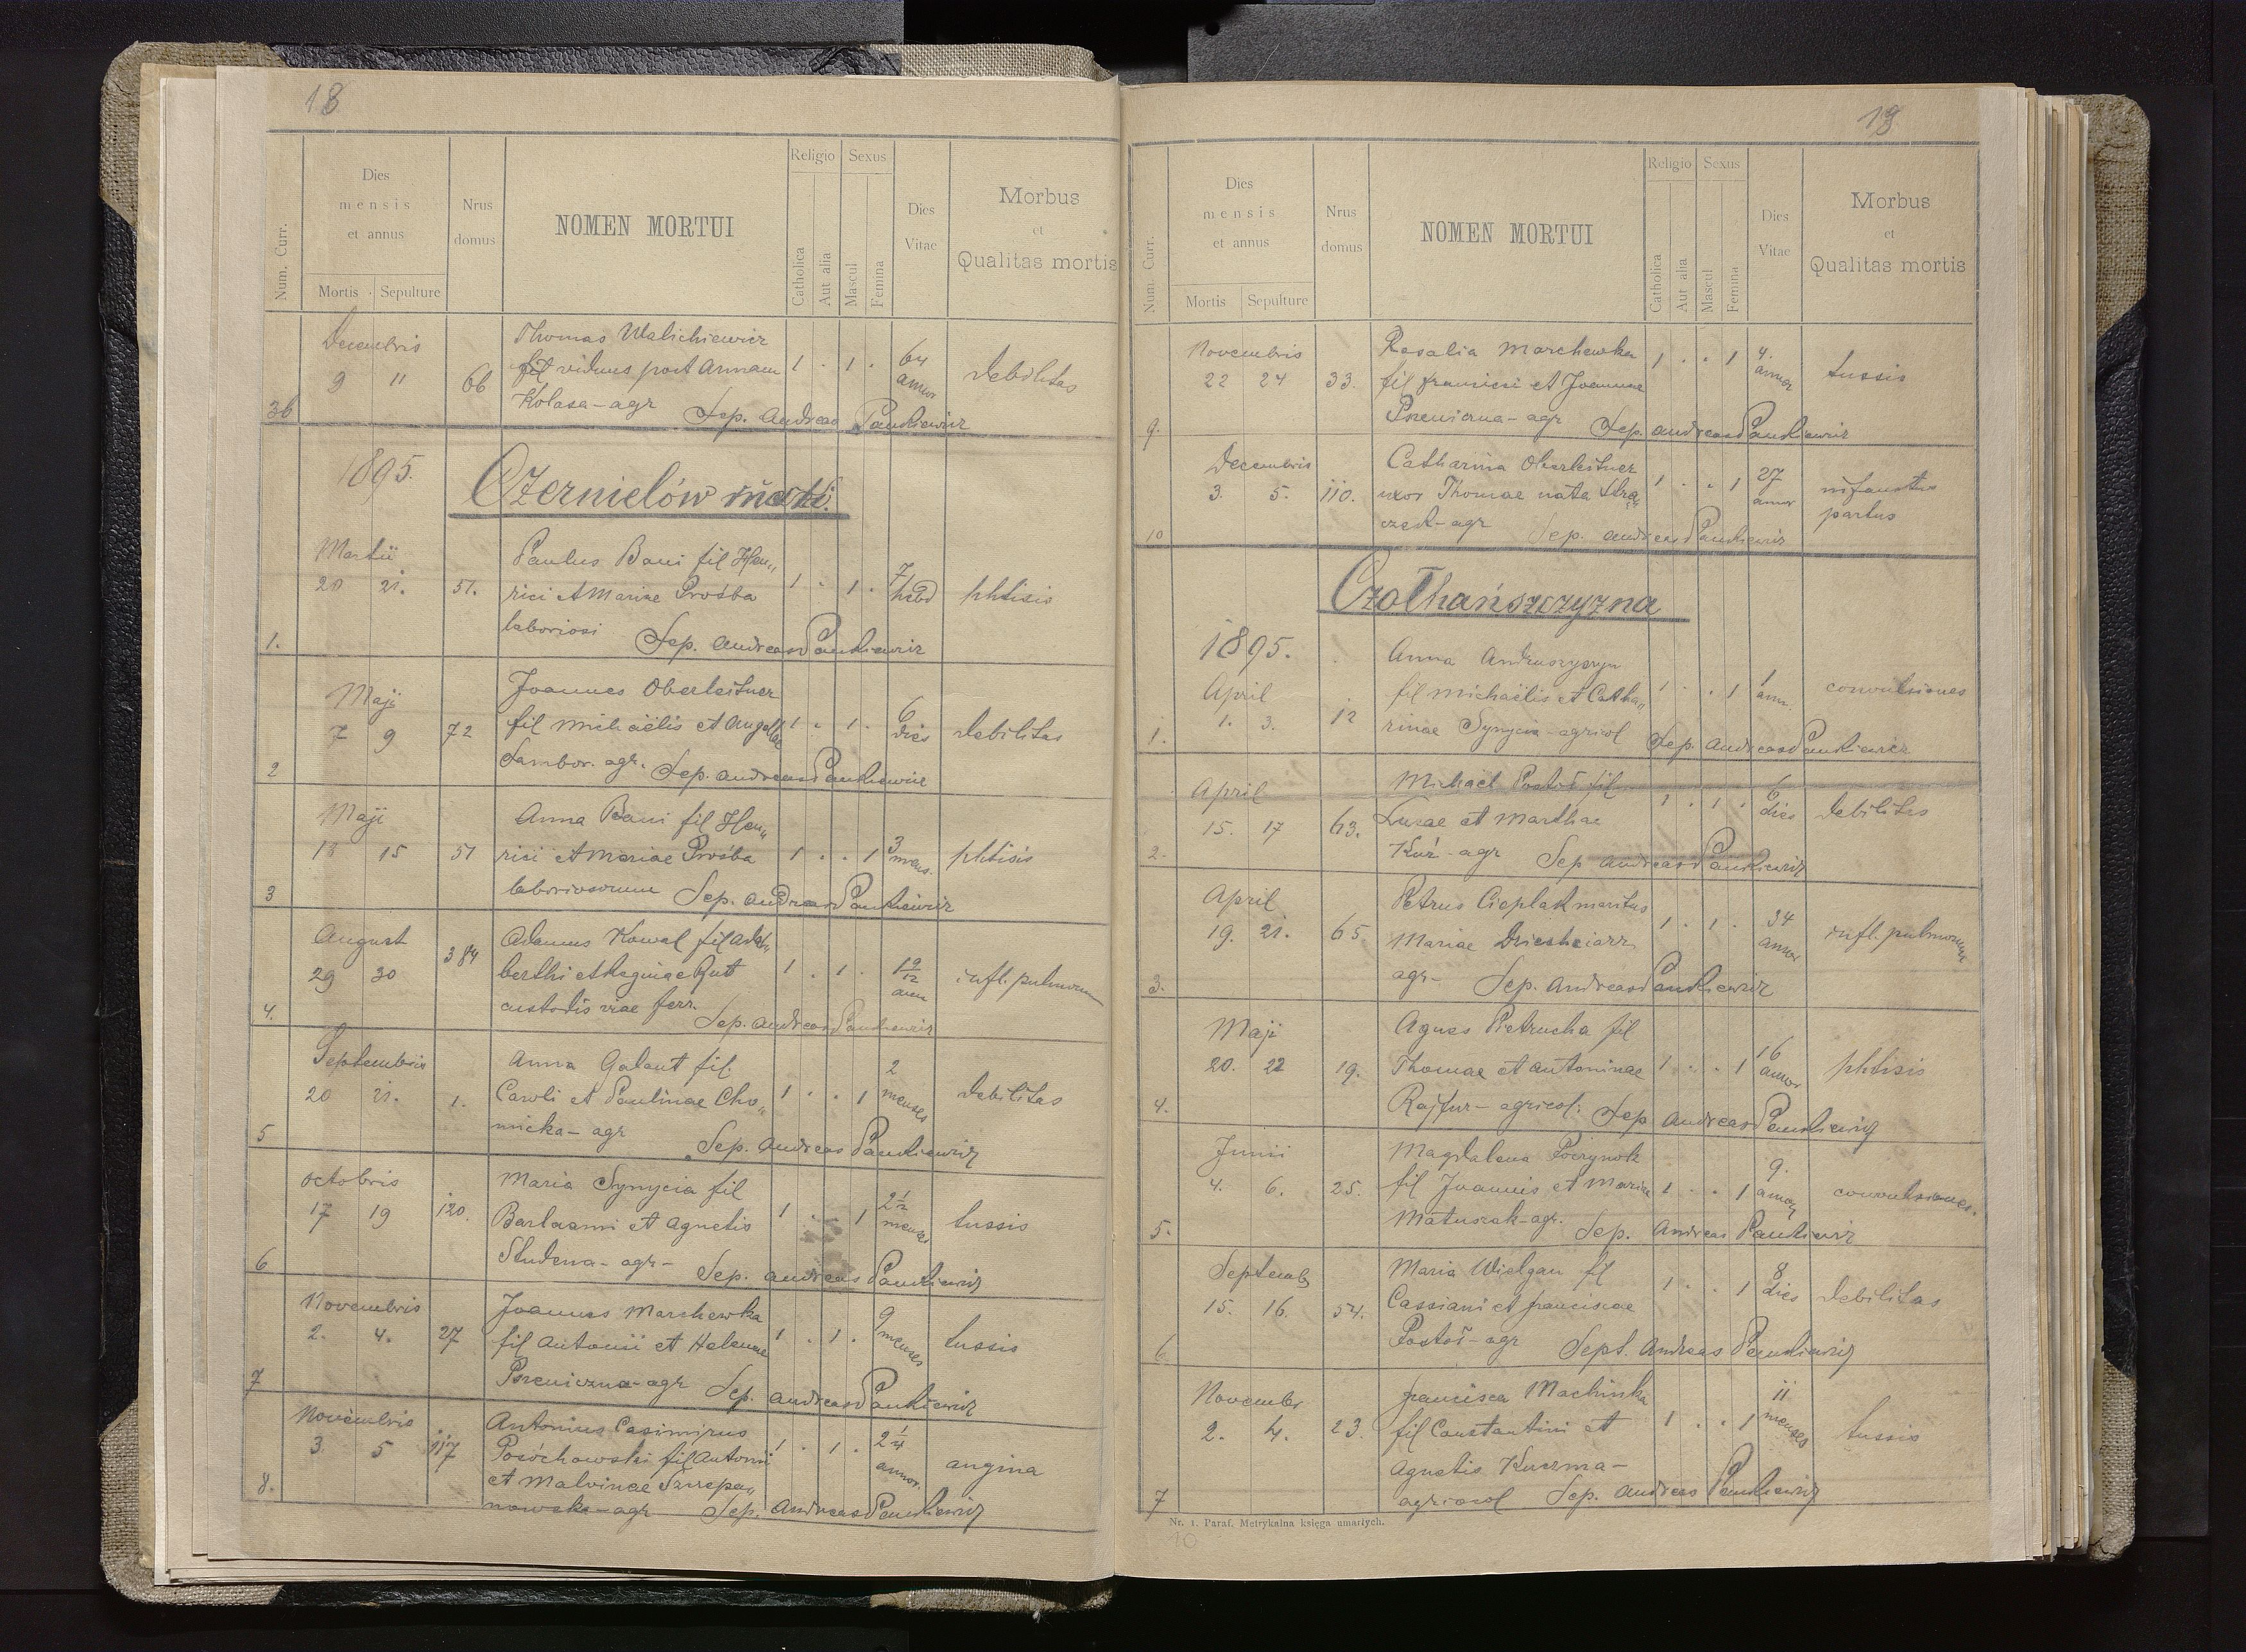 18
Num. Curr.
Dies
mensis
et annus
Mortis
Sepulture
Nrus
domus
NOMEN MORTUI
Religio
Catholica
Aut alia
Sexus
Mascul
Femina
Dies
Vitae
Morbus
et
Qualitas mortis
Decembris
Thomas Walichiewicz
9 11 66 viduus post Annam 1 . 1 . 64 annor debilitas
36 Kolasa - agr Sep. Andreas Pankiewicz
1895.
Czernielów maz.
Martii
Paulus Bani fil Hen„
20 21. 51. rici et Mariae Prośba 1 . 1 . 7 hebd phtisis
1. laboriosi Sep. Andreas Pankiewicz
Maji
Joannes Oberleitner
7 9 72 fil Michaëlis et Angellae 1 . 1 . 6 dies debilitas
2 Sambor. agr. Sep. Andreas Pankiewicz
Maji
Anna Bani fil Hen„
13 15 51 rici et Mariae Prośba 1 . . 1 3 mens. phtisis
3 laboriosorum Sep. Andreas Pankiewicz
August
Adamus Kowal fil Adal„
29 30 384 berthi et Reginae Rutt 1 . 1 . 1 9/12 ann infl. pulmorum
4. custodis viae ferr. Sep. Andreas Pankiewicz
Septembris
Anna Galant fil.
20 21. 1. Caroli et Paulinae Cho„ 1 . . 1 2 menses debilitas
5 micka - agr Sep. Andreas Pankiewicz
Octobris
Maria Synycia fil
17 19 120. Barlaami et Agnetis 1 . . 1 2 1/2 menses tussis
6 Studena - agr - Sep. Andreas Pankiewicz
Novembris
Joannes Marchewka
2. 4. 27 fil Antonii et Helenae 1 . 1 . 9 menses tussis
7 Pszeniczna - agr Sep. Andreas Pankiewicz
Novembris
Antonius Casimirus
3 5 117 Posóchowski fil Antonii 1 . 1 . 2 1/4 annor. angina
8. et Malvinae Szczepa„
nowska - agr Sep. Andreas Pankiewicz
19
Num. Curr.
Dies
mensis
et annus
Mortis
Sepulture
Nrus
domus
NOMEN MORTUI
Religio
Catholica
Aut alia
Sexus
Mascul
Femina
Dies
Vitae
Morbus
et
Qualitas mortis
Novembris
Rosalia Marchewka
22 24 33. fil Francisci et Joannae 1 . . 1 4. annor tussis
9. Pszeniczna - agr Sep. Andreas Pankiewicz
Decembris
Catharina Oberleitner
3. 5. 110. uxor Thomae nata Strą„ 1 . . 1 27 annor infaustus partus
10 czek - agr Sep. Andreas Pankiewicz
Czołhańszczyzna
1895.
Anna Andruszyszyn
April
fil Michaëlis et Catha„ 1 . . 1 1 ann. convulsiones
1. 1. 3. 12 rinae Synycia - agricol Sep. Andreas Pankiewicz
April
Michaël Postoł fil
15. 17 63. Lucae et Marthae 1 . 1 . 6 dies debilitas
2. Kuź - agr Sep Andreas Pankiewicz
April
Petrus Cieplak maritus
19. 21. 65. Mariae 1 . 1 . 34 annor infl. pulmorum
3. agr - Sep. Andreas Pankiewicz
Maji
Agnes Pietrucha fil
20. 22 19. Thomae et Antoninae 1 . . 1 16 annor phtisis
4. Rajfur - agricol: Sep Andreas Pankiewicz
Junii
Magdalena Poczynok
4. 6. 25. fil Joannis et Mariae 1 . . 1 9. annor convulsiones.
5. Matuszak - agr. Sep. Andreas Pankiewicz
Septemb
Maria Wielgan fil
15. 16. 54. Cassiani et Franciscae 1 . . 1 8 dies debilitas
6 Postoł - agr Sept. Andreas Pankiewicz
Novembr
Francisca Machinka
2. 4. 23. fil Constantini et 1 . . 1 11 menses tussis
Agnetis Kuczma -
7 agricol Sep. Andreas Pankiewicz
Nr. 1. Paraf. Metrykalna księga umarłych.
10